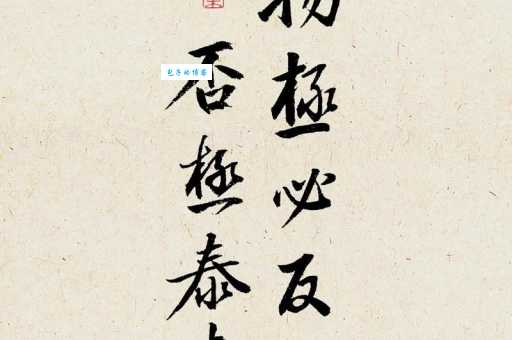 物極必反
否極泰
包子的博客